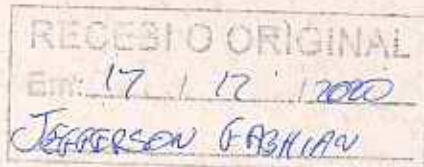 RECEBI O ORIGINAL
Em: 17 / 12 / 2020
JEFFERSON FABHIAN